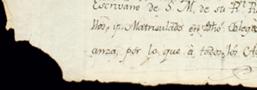 Escrivano de S. M. de su Rl.
Nos, y Matriculados en dho Colegio
anza, por lo que à todos los